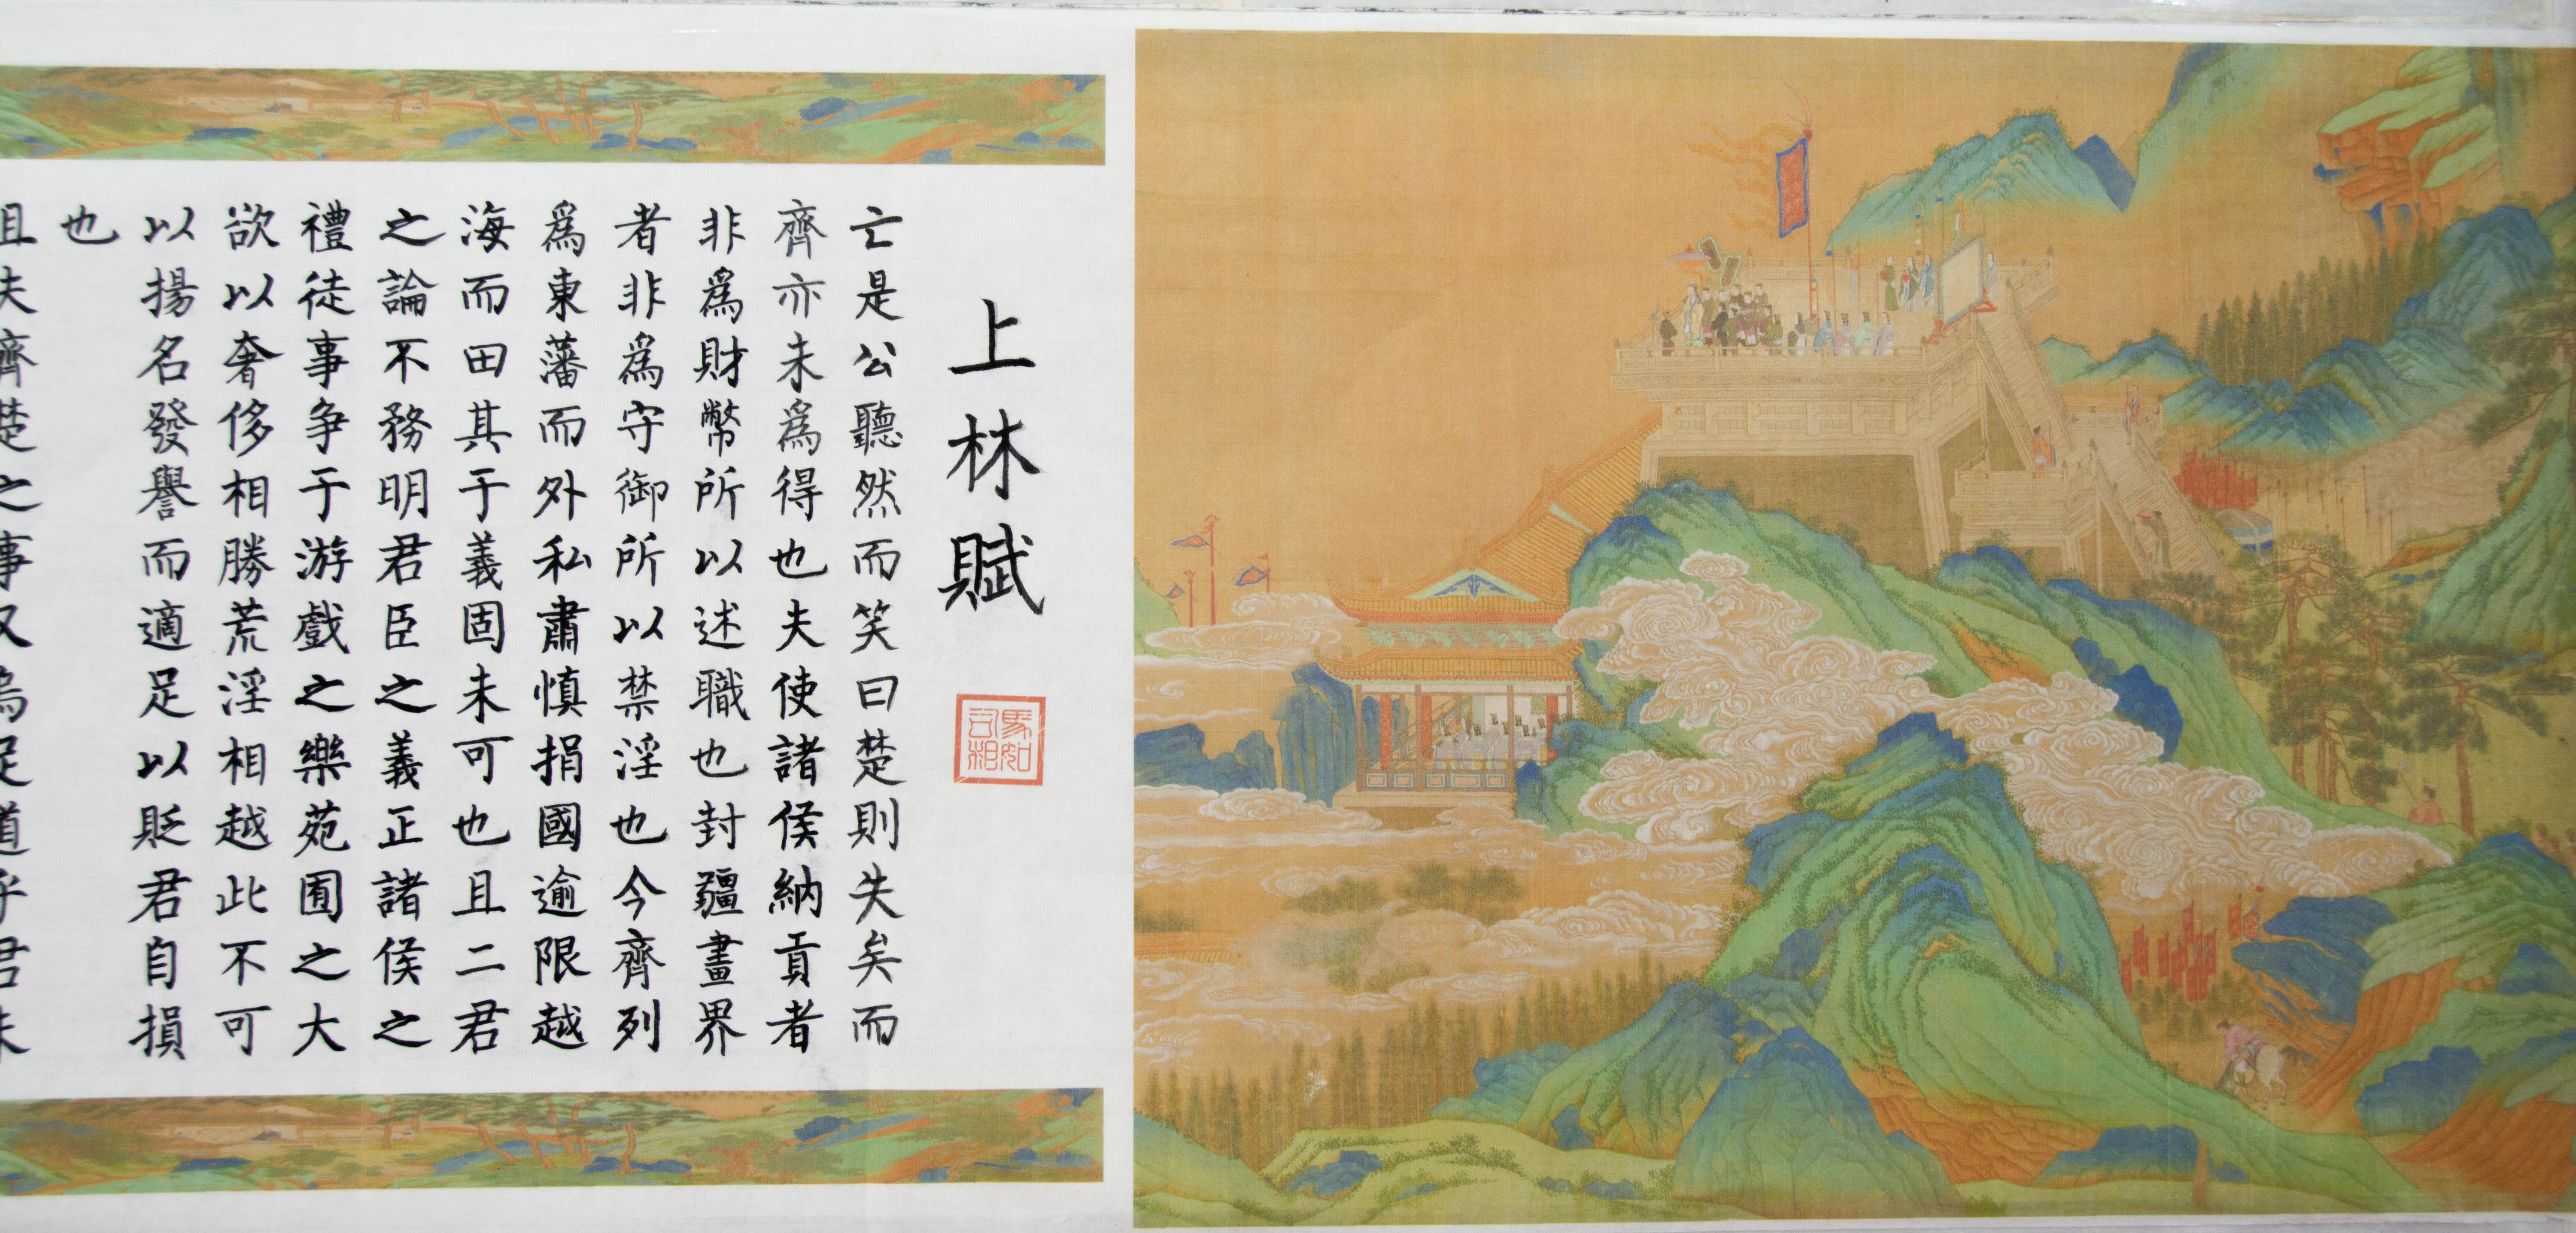 上林賦
司馬相如
亡是公聽然而笑曰楚則失矣而
齊亦未為得也夫使諸侯納貢者
非爲財幣所以述職也封疆畫界
者非爲守御所以禁淫也今齊列
爲東藩而外私肅慎捐國逾限越
海而田其于義固未可也且二君
之論不務明君臣之義正諸侯之
禮徒事争于游戲之樂苑囿之大
欲以奢侈相勝荒淫相越此不可
以揚名發譽而適足以貶君自損
也
且夫齊楚之事又烏足道乎君未